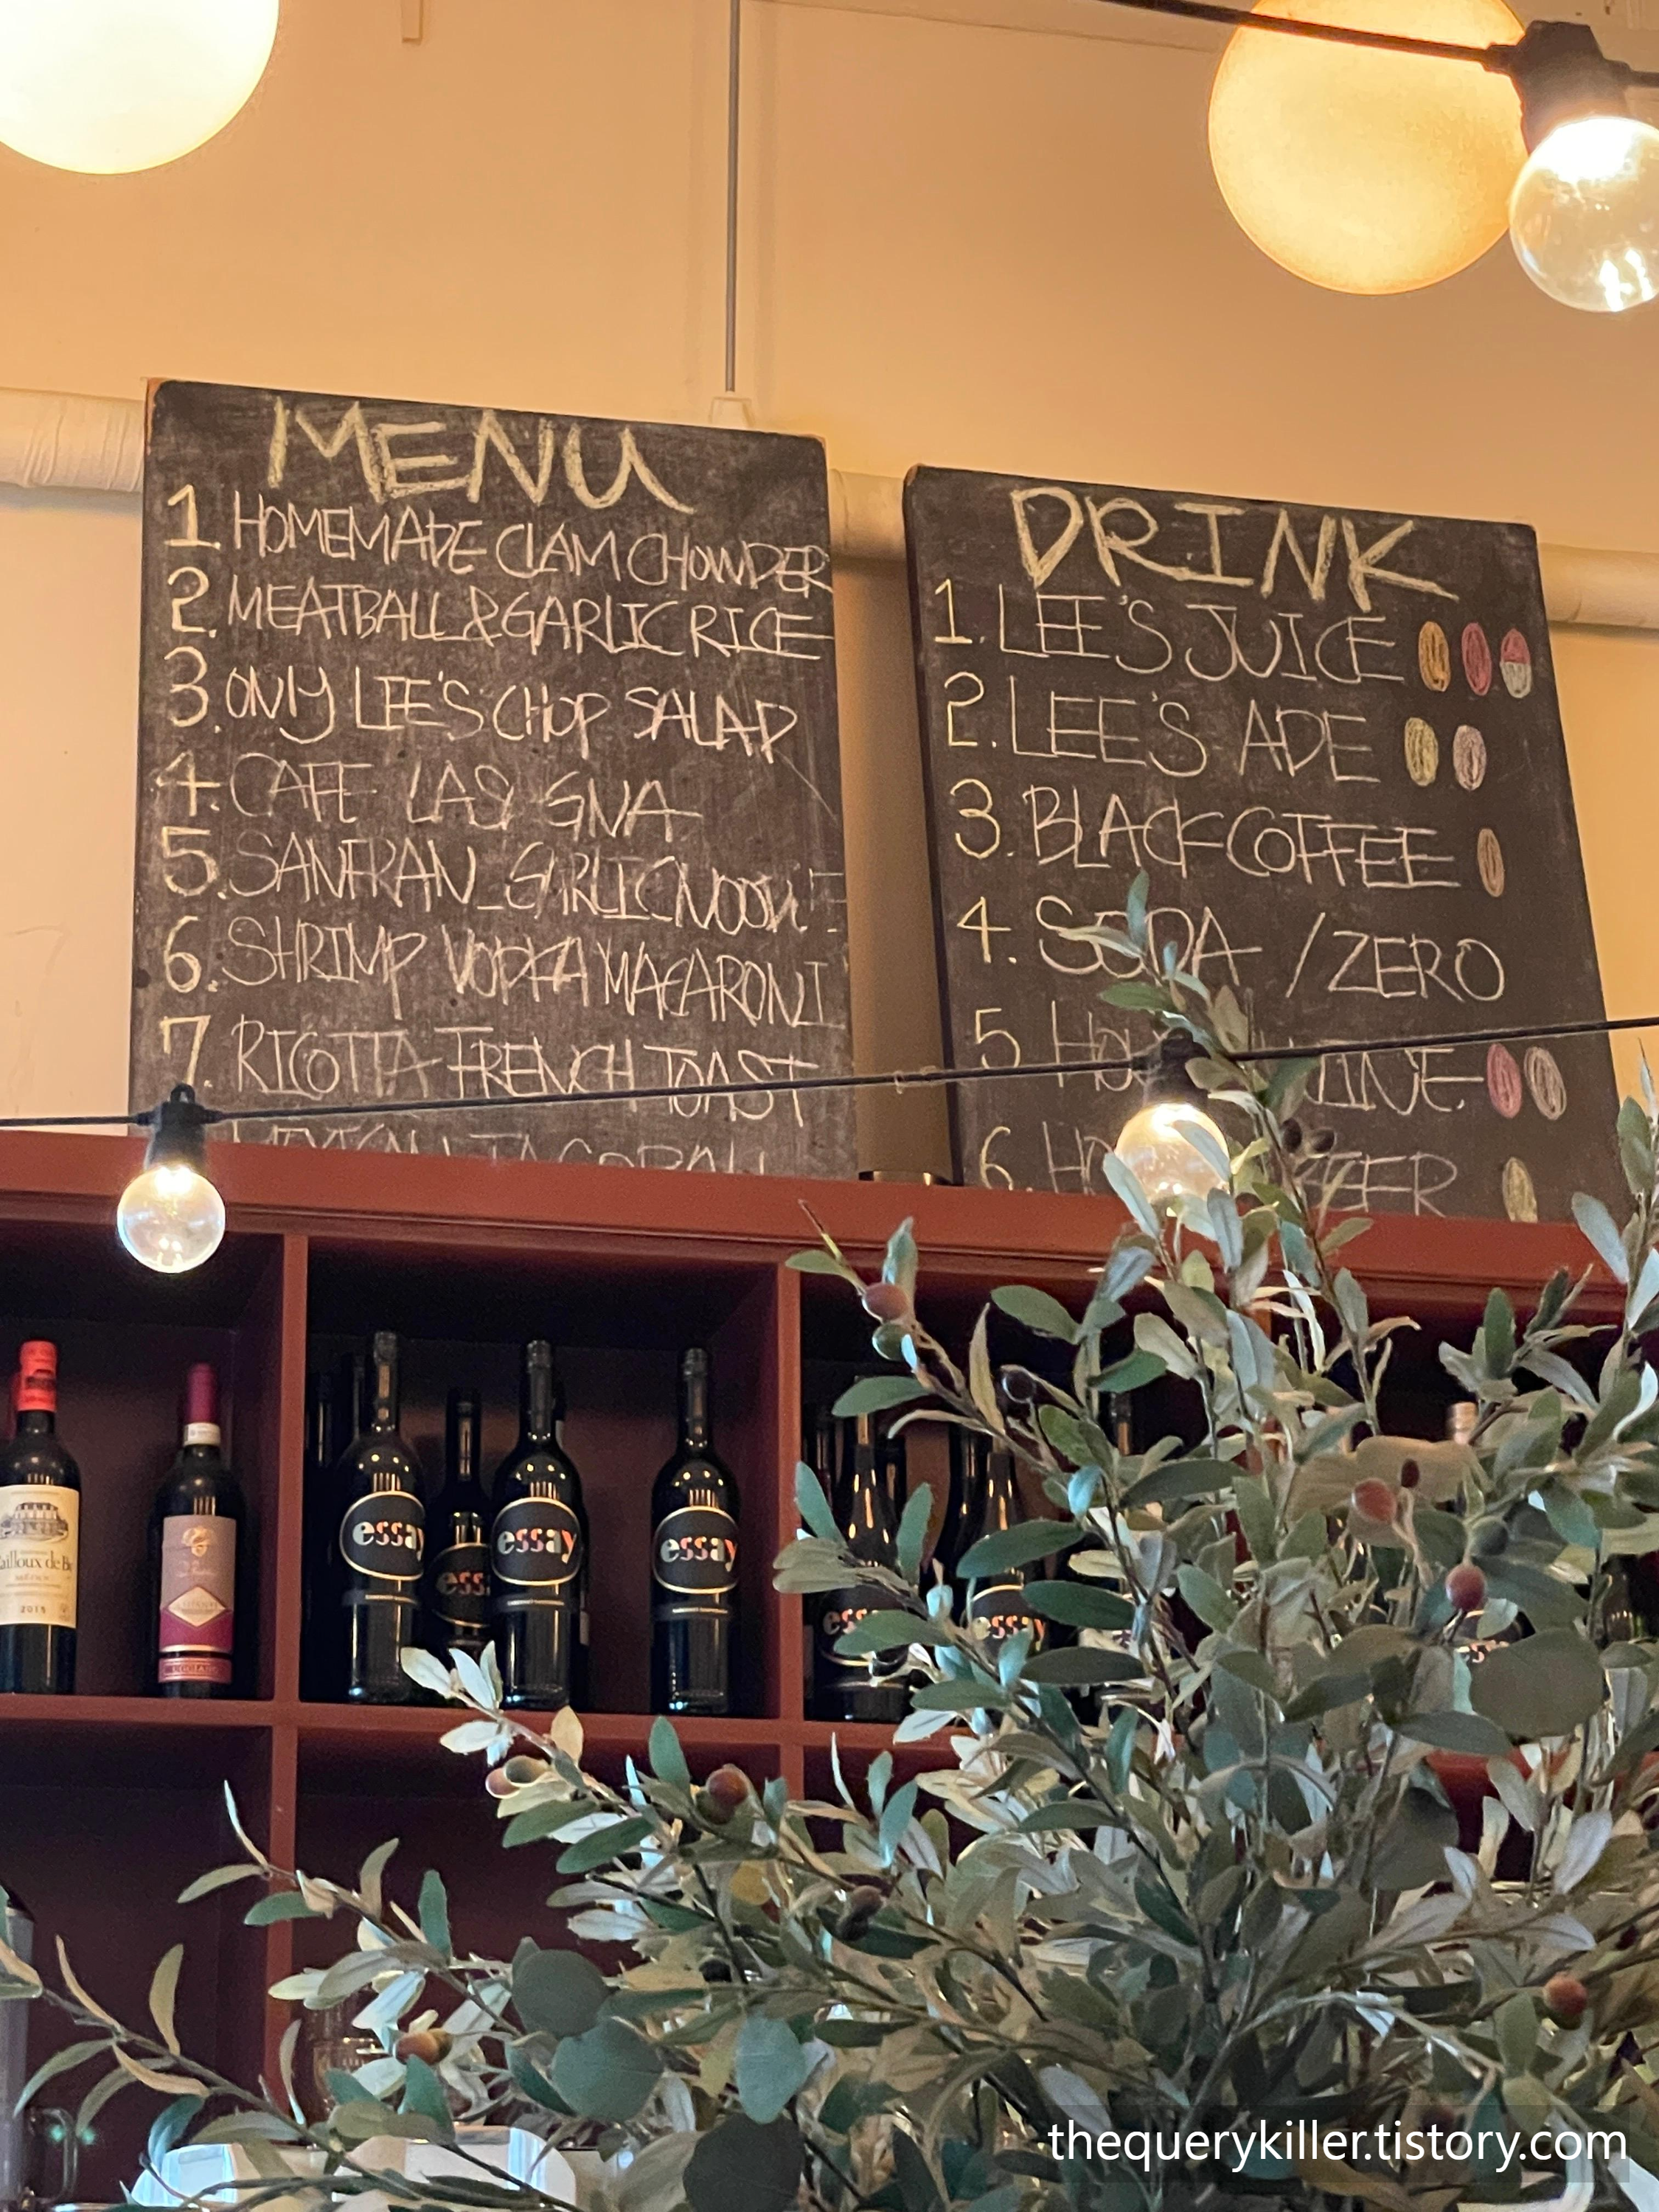 MENU
1. HOMEMADE CLAM CHOWDER
2. MEATBALL & GARLIC RICE
3. ONLY LEE'S CHOP SALAD
4. CAFE LASAGNA
5. SANFRAN GARLIC NOODLE
6. SHRIMP VODKA MACARONI
7. RICOTTA FRENCH TOAST
DRINK
1. LEE'S JUICE
2. LEE'S ADE
3. BLACK COFFEE
4. SODA / ZERO
5
6.
essay
essay
essay
essay
2015
thequerykiller.tistory.com